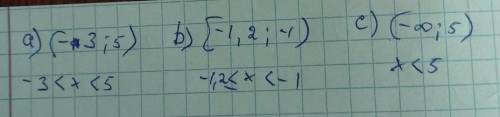 a) (-3; 5)  b) [-1,2; -1)  c) (-∞; 5)
-3 < x < 5  -1,2 ≤ x < -1  x < 5